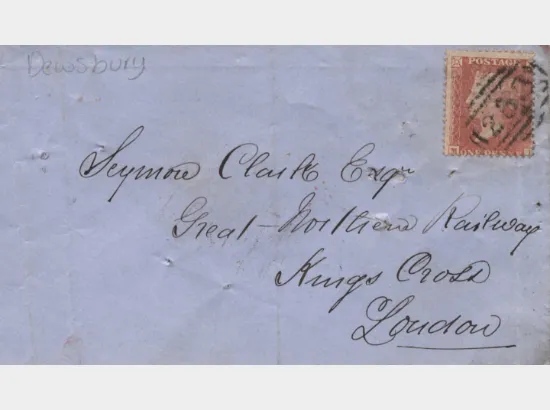 Dewsbury
POSTAGE
ONE PENNY
Seymore Clark Esqr
Great Northern Railway
Kings Cross
London